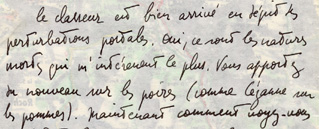 le classeur est bien arrivé en dépit des
perturbations postales. Oui, ce sont les natures
mortes qui m'intéressent le plus. Vous apportez
du nouveau sur les poires (comme Cézanne sur
les pommes). Maintenant comment voyez-vous